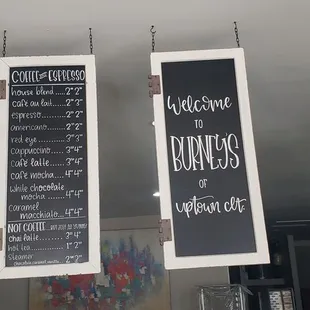 COFFEE AND ESPRESSO
house blend.....2⁰ 2⁵
cafe au lait......2⁷ 3²
espresso.........2⁰ 2⁵
americano......2⁵ 2⁷
red eye.........3⁰ 3⁵
cappuccino.....3⁵ 4⁰
caffe latte.....3⁵ 4⁰
cafe mocha....4⁰ 4⁵
white chocolate
mocha....4⁰ 4⁵
caramel
macchiato..4⁰ 4⁵
NOT COFFEE
chai latte......3⁵ 4⁰
hot tea..........1⁵ 2⁰
steamer.......2⁰ 2⁵
Welcome
TO
BURNEY'S
OF
uptown clt.